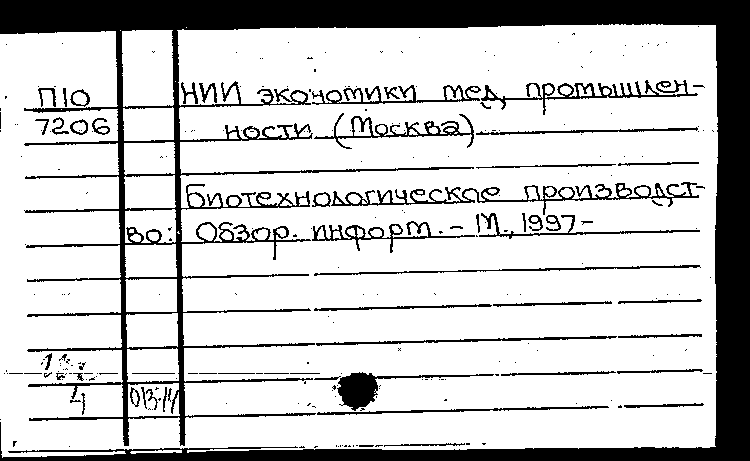 П10 НИИ экономики мед. промышлен-
7206 ности (Москва)
Биотехнологическое производст-
во: Обзор. информ. - М., 1997-
4